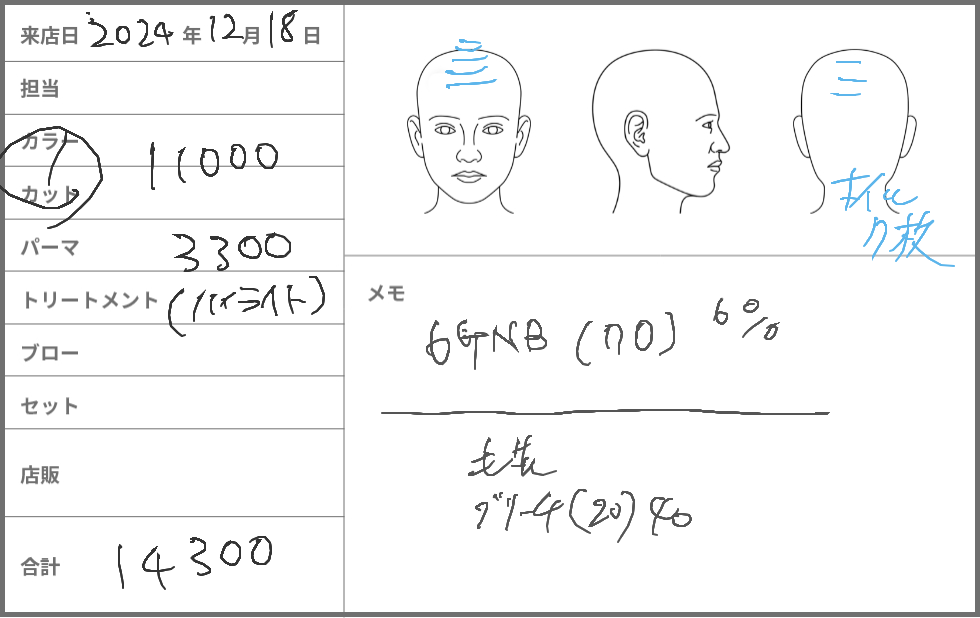 来店日 2024年12月18日
担当
カラー 11000
カット
パーマ 3300
トリートメント (ハイライト)
ブロー
セット
店販
合計 14300
7枚
メモ
6GNB (70) 6%
毛先
ブリーチ(20) 40